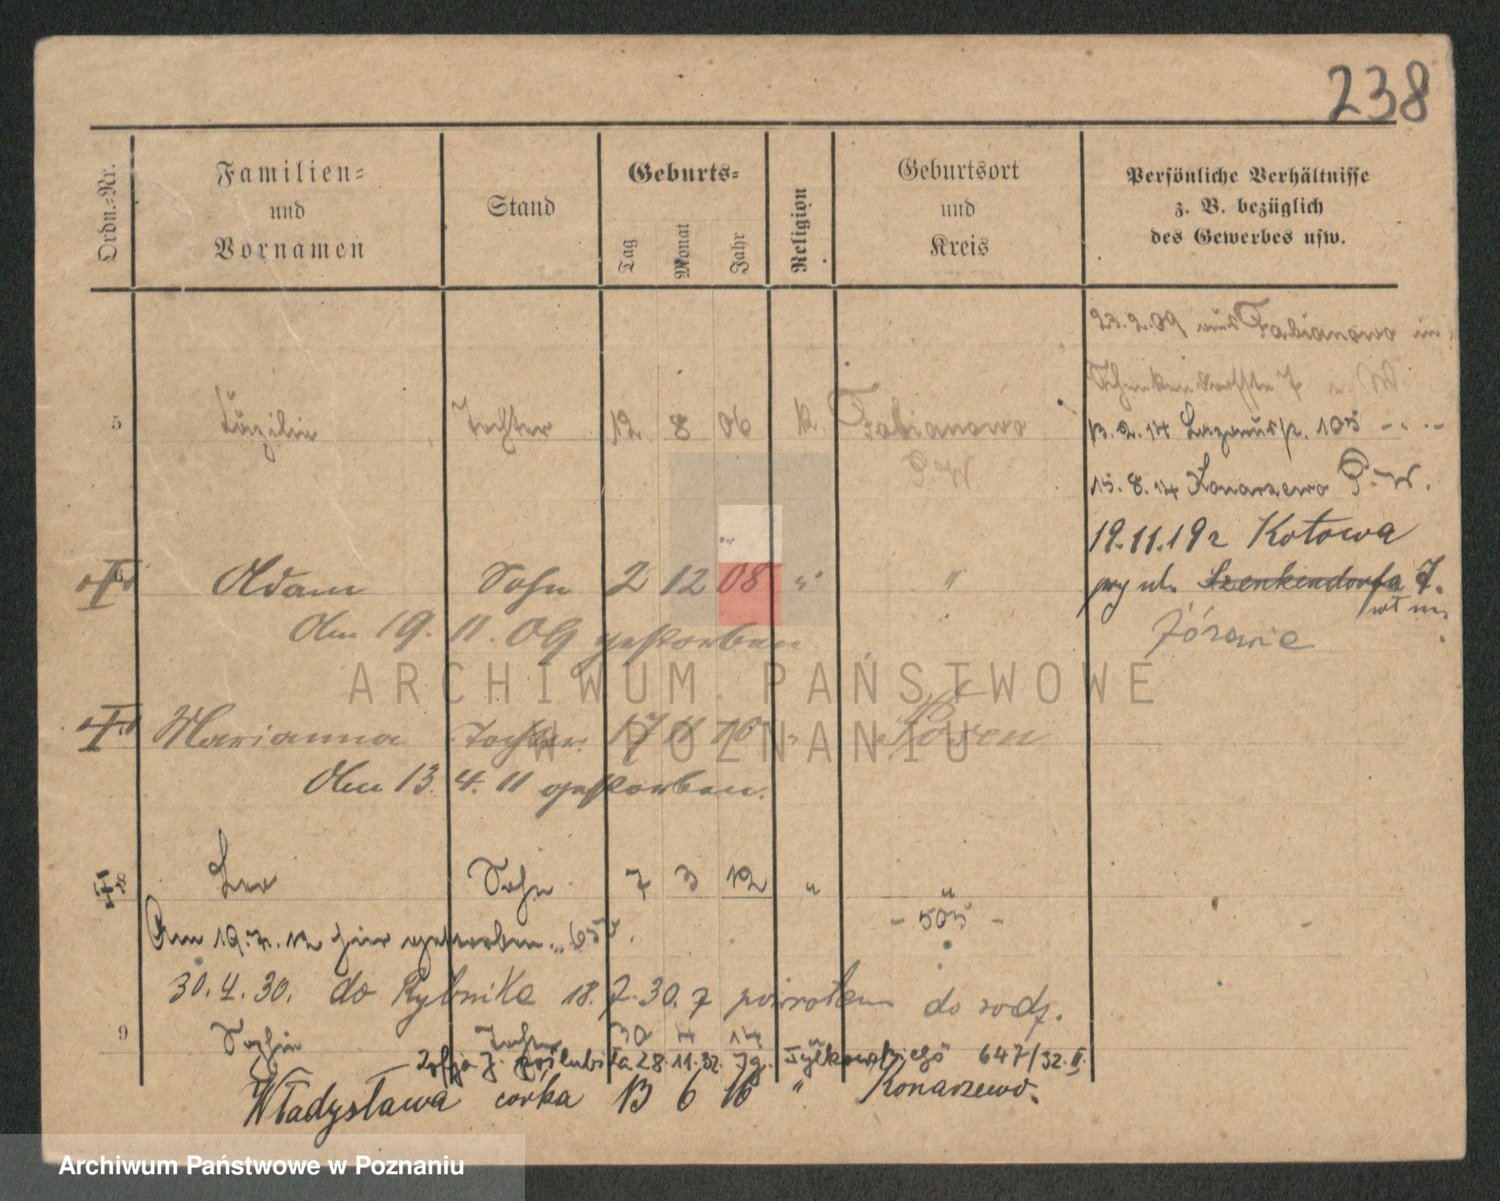 238
Ordn.-Nr.
Familien-
und
Vornamen
Stand
Geburts-
Tag
Monat
Jahr
Religion
Geburtsort
und
Kreis
Persönliche Verhältnisse
z. B. bezüglich
des Gewerbes usw.
23.2.09 aus Fabianowo in
5 Tochter 12 8 06 K Fabianowo
P. W
13.2.14 Lazarus 105
15.8.14 Konarzewo P.-W.
19.11.19 r Kotowa
przy ul. Szenkendorfa 7.
Żórawie
Adam Sohn 2 12 08 " "
Am 19. 11. 09 gestorben
Marianna Tochter 17 11 10 " Posen
Am 13. 4. 11 gestorben.
8 Leo Sohn 7 3 12 " "
- 505 -
Am 19.7.12 hier gestorben.
30. 4. 30. do Rybnika 18. 7. 30. z powrotem do rodz.
9 Sophie Tochter 30 4 14 "
Zofja poślubiła 28.11.32. Ig. Tylkowskiego 647/32.II.
Władysława córka 13 6 16 " Konarzewo.
ARCHIWUM PAŃSTWOWE
W POZNANIU
Archiwum Państwowe w Poznaniu